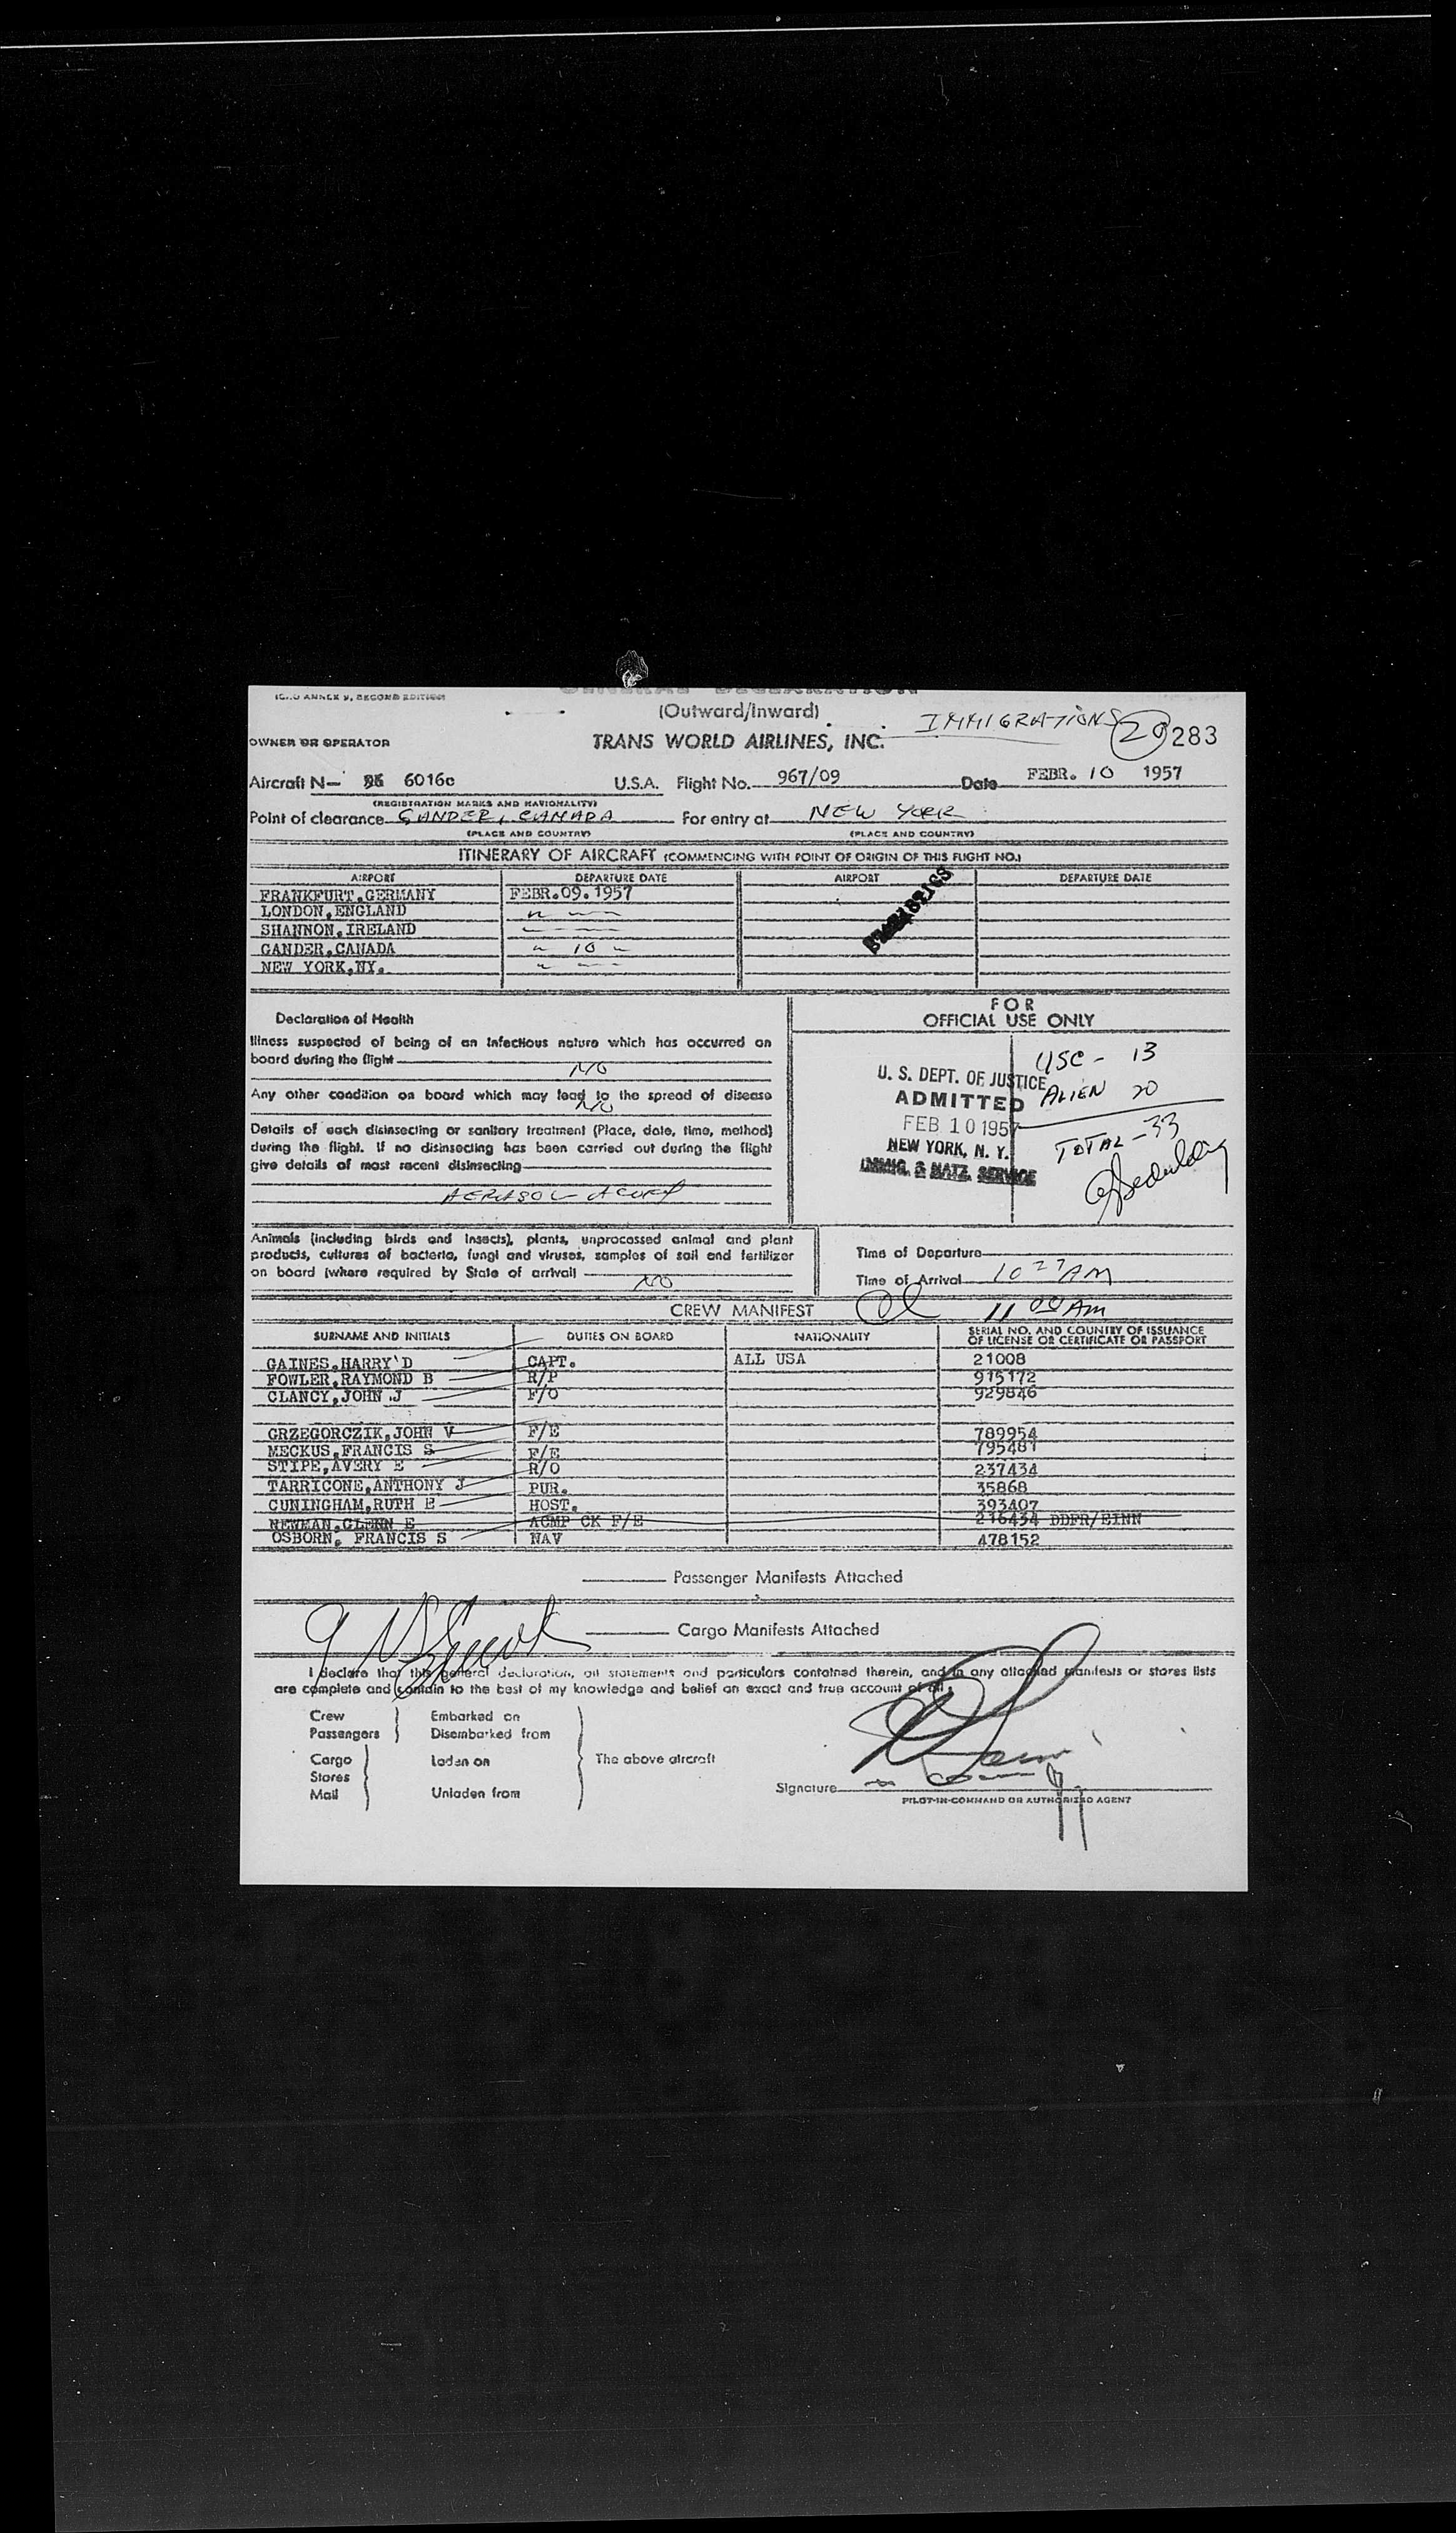 (Outward/Inward)
IMMIGRATIONS
29283
OWNER OR OPERATOR
TRANS WORLD AIRLINES, INC.
Aircraft N— 6016c U.S.A. Flight No. 967/09 Date FEBR. 10 1957
(REGISTRATION MARKS AND NATIONALITY)
Point of clearance GANDER, CANADA For entry at NEW YORK
(PLACE AND COUNTRY) (PLACE AND COUNTRY)
ITINERARY OF AIRCRAFT (COMMENCING WITH POINT OF ORIGIN OF THIS FLIGHT NO.)
AIRPORT DEPARTURE DATE AIRPORT DEPARTURE DATE
FRANKFURT,GERMANY FEBR.09.1957
LONDON,ENGLAND
SHANNON,IRELAND
GANDER,CANADA " 10 "
NEW YORK,NY.
Declaration of Health
Illness suspected of being of an infectious nature which has occurred on
board during the flight NO
Any other condition on board which may lead to the spread of disease
NO
Details of each disinsecting or sanitary treatment (Place, date, time, method)
during the flight. If no disinsecting has been carried out during the flight
give details of most recent disinsecting
AEROSOL
FOR
OFFICIAL USE ONLY
U. S. DEPT. OF JUSTICE
ADMITTED
FEB 10 1957
NEW YORK, N. Y.
IMMIG. & NATZ. SERVICE
USC - 13
ALIEN 20
TOTAL - 33
Animals (including birds and insects), plants, unprocessed animal and plant
products, cultures of bacteria, fungi and viruses, samples of soil and fertilizer
on board (where required by State of arrival) NO
Time of Departure
Time of Arrival 10 27 AM
11 00 AM
CREW MANIFEST
SURNAME AND INITIALS DUTIES ON BOARD NATIONALITY SERIAL NO. AND COUNTRY OF ISSUANCE
OF LICENSE OR CERTIFICATE OR PASSPORT
GAINES,HARRY'D CAPT. ALL USA 21008
FOWLER,RAYMOND B R/P 915172
CLANCY,JOHN J F/O 929846
GRZEGORCZIK,JOHN V F/E 789954
MECKUS,FRANCIS S F/E 795481
STIPE,AVERY E R/O 237434
TARRICONE,ANTHONY J PUR. 35868
CUNINGHAM,RUTH E HOST. 393407
NEWMAN,GLENN E ACMP CK F/E 216434 DDFR/EINN
OSBORN, FRANCIS S NAV 478152
Passenger Manifests Attached
Cargo Manifests Attached
I declare that this general declaration, all statements and particulars contained therein, and in any attached manifests or stores lists
are complete and contain to the best of my knowledge and belief an exact and true account of all
Crew Embarked on
Passengers Disembarked from
Cargo Laden on The above aircraft
Stores
Mail Unladen from
Signature
PILOT-IN-COMMAND OR AUTHORIZED AGENT